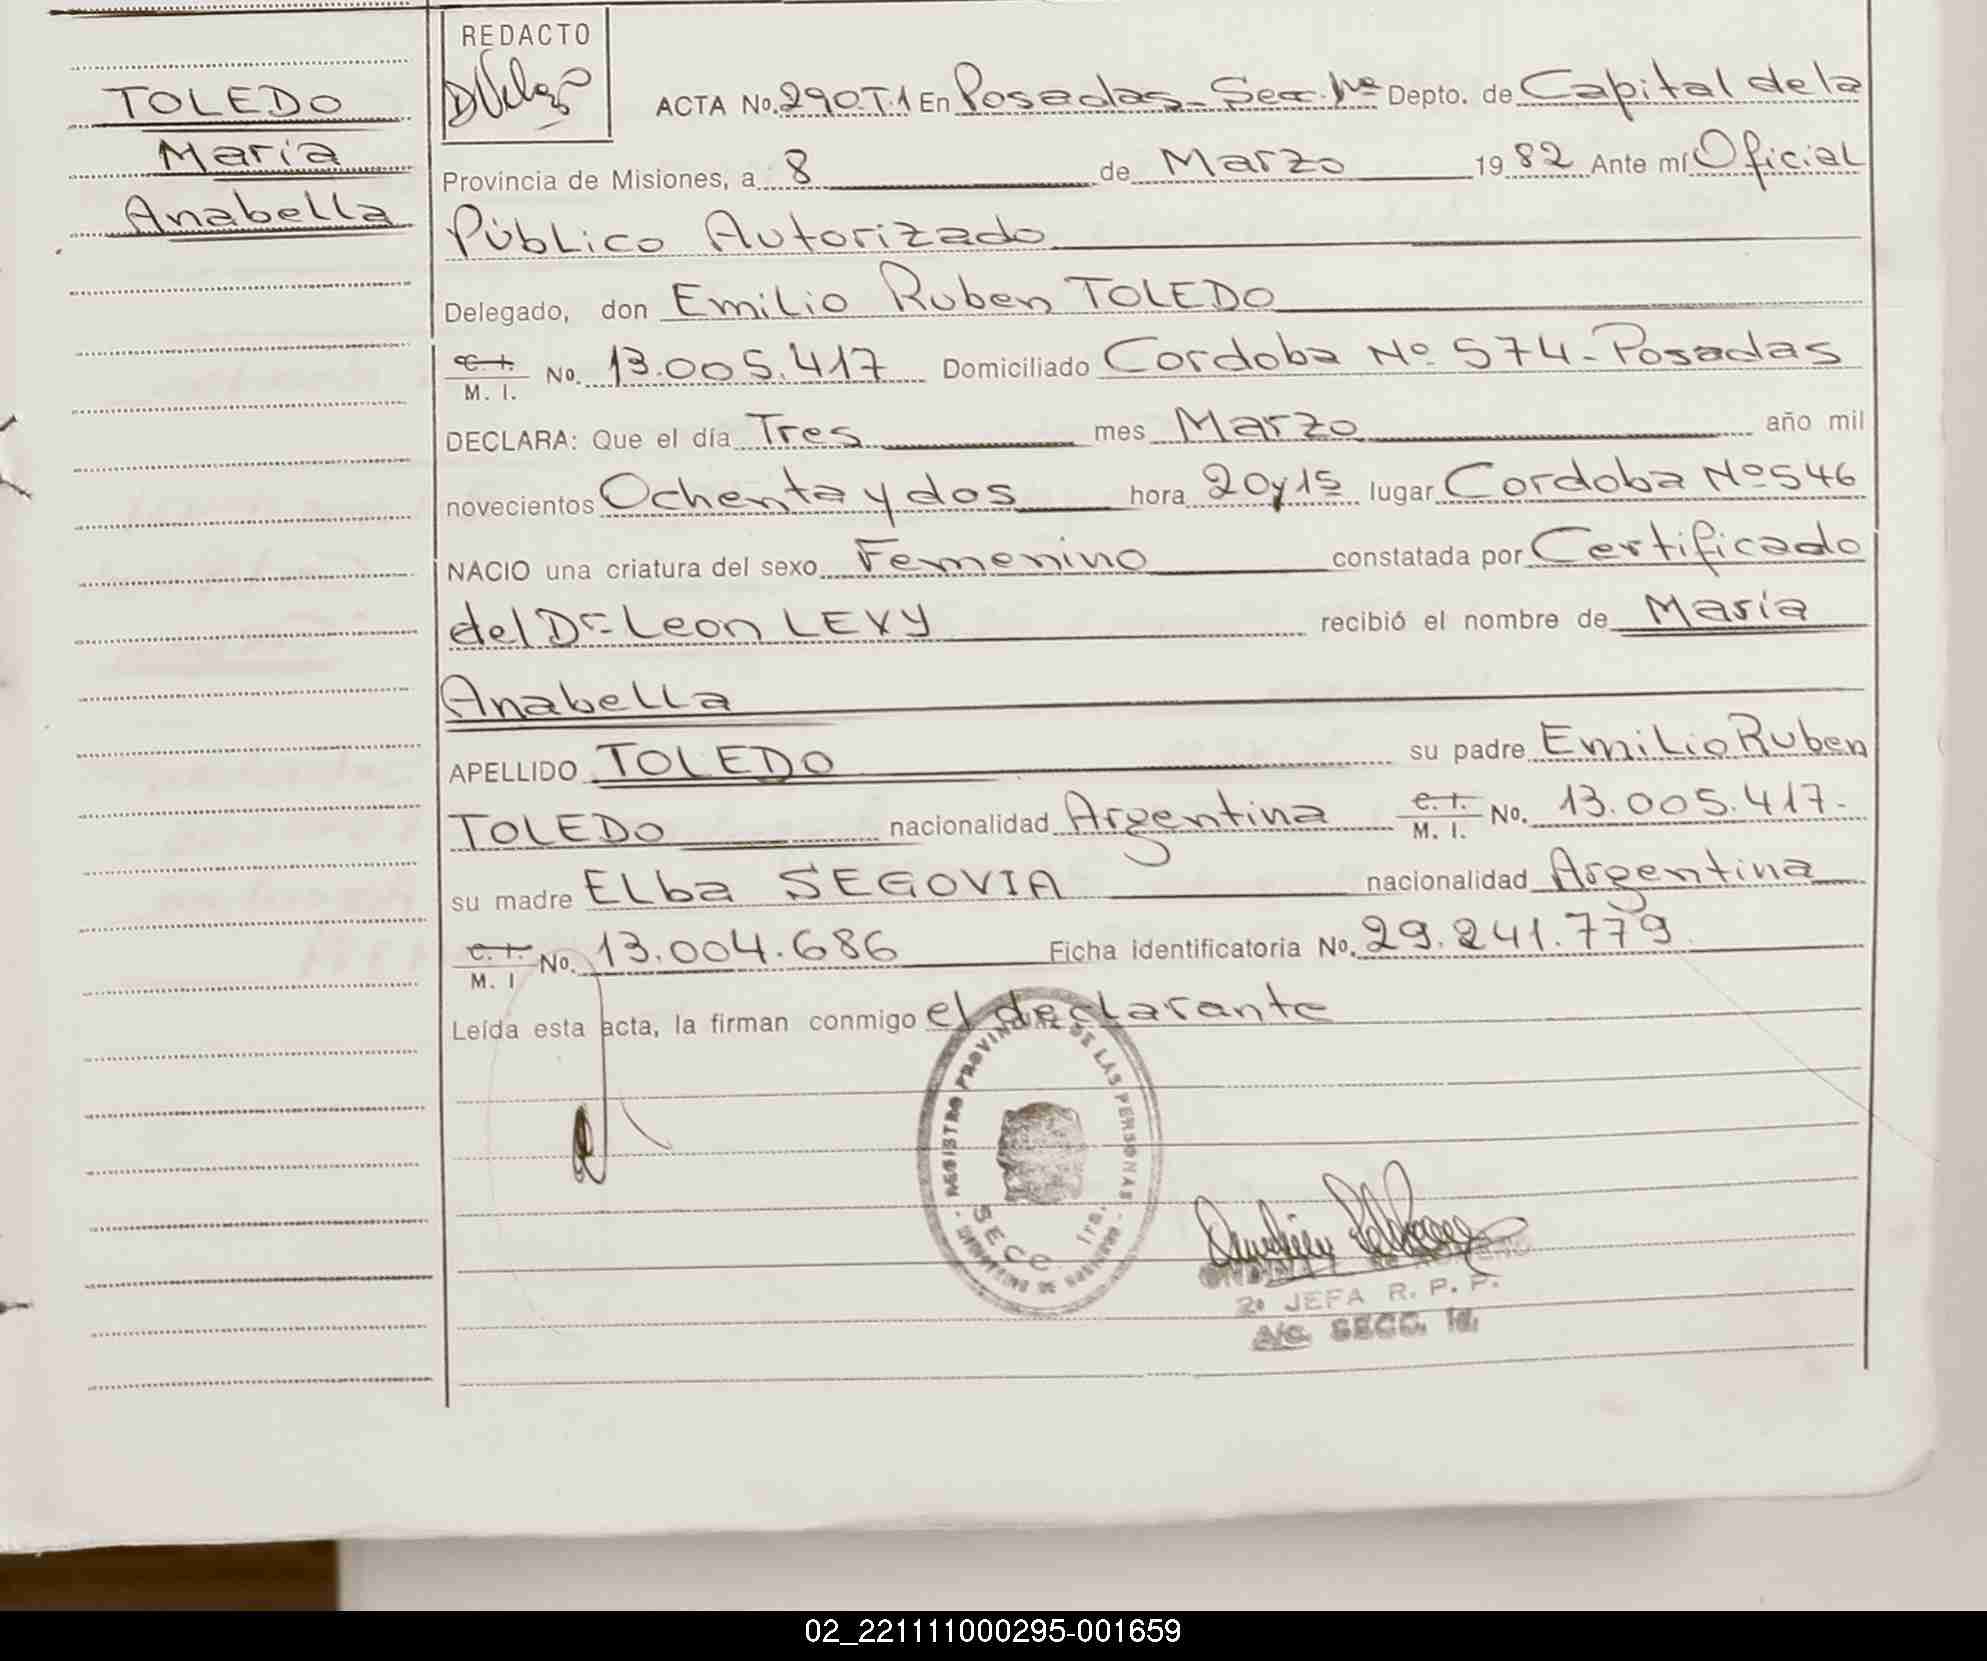 REDACTO
TOLEDO
María
Anabella
ACTA No. 290.T.1 En Posadas - Sec. 1ra Depto. de Capital de la
Provincia de Misiones, a 8 de Marzo 1982 Ante mí Oficial
Público Autorizado
Delegado, don Emilio Ruben TOLEDO
C. I.
M. I. No. 13.005.417 Domiciliado Cordoba Nº 574 - Posadas
DECLARA: Que el día Tres mes Marzo año mil
novecientos Ochenta y dos hora 20 y 15 lugar Cordoba Nº 546
NACIO una criatura del sexo Femenino constatada por Certificado
del Dr Leon LEVY recibió el nombre de María
Anabella
APELLIDO TOLEDO su padre Emilio Ruben
TOLEDO nacionalidad Argentina C. I. M. I. No. 13.005.417.-
su madre Elba SEGOVIA nacionalidad Argentina
C. I. M. I No. 13.004.686 Ficha identificatoria No. 29.241.779
Leída esta acta, la firman conmigo el declarante
REGISTRO PROVINCIAL DE LAS PERSONAS
SECC. 1ra.
2º JEFA R. P. P.
A/C. SECC. 1a.
02_221111000295-001659